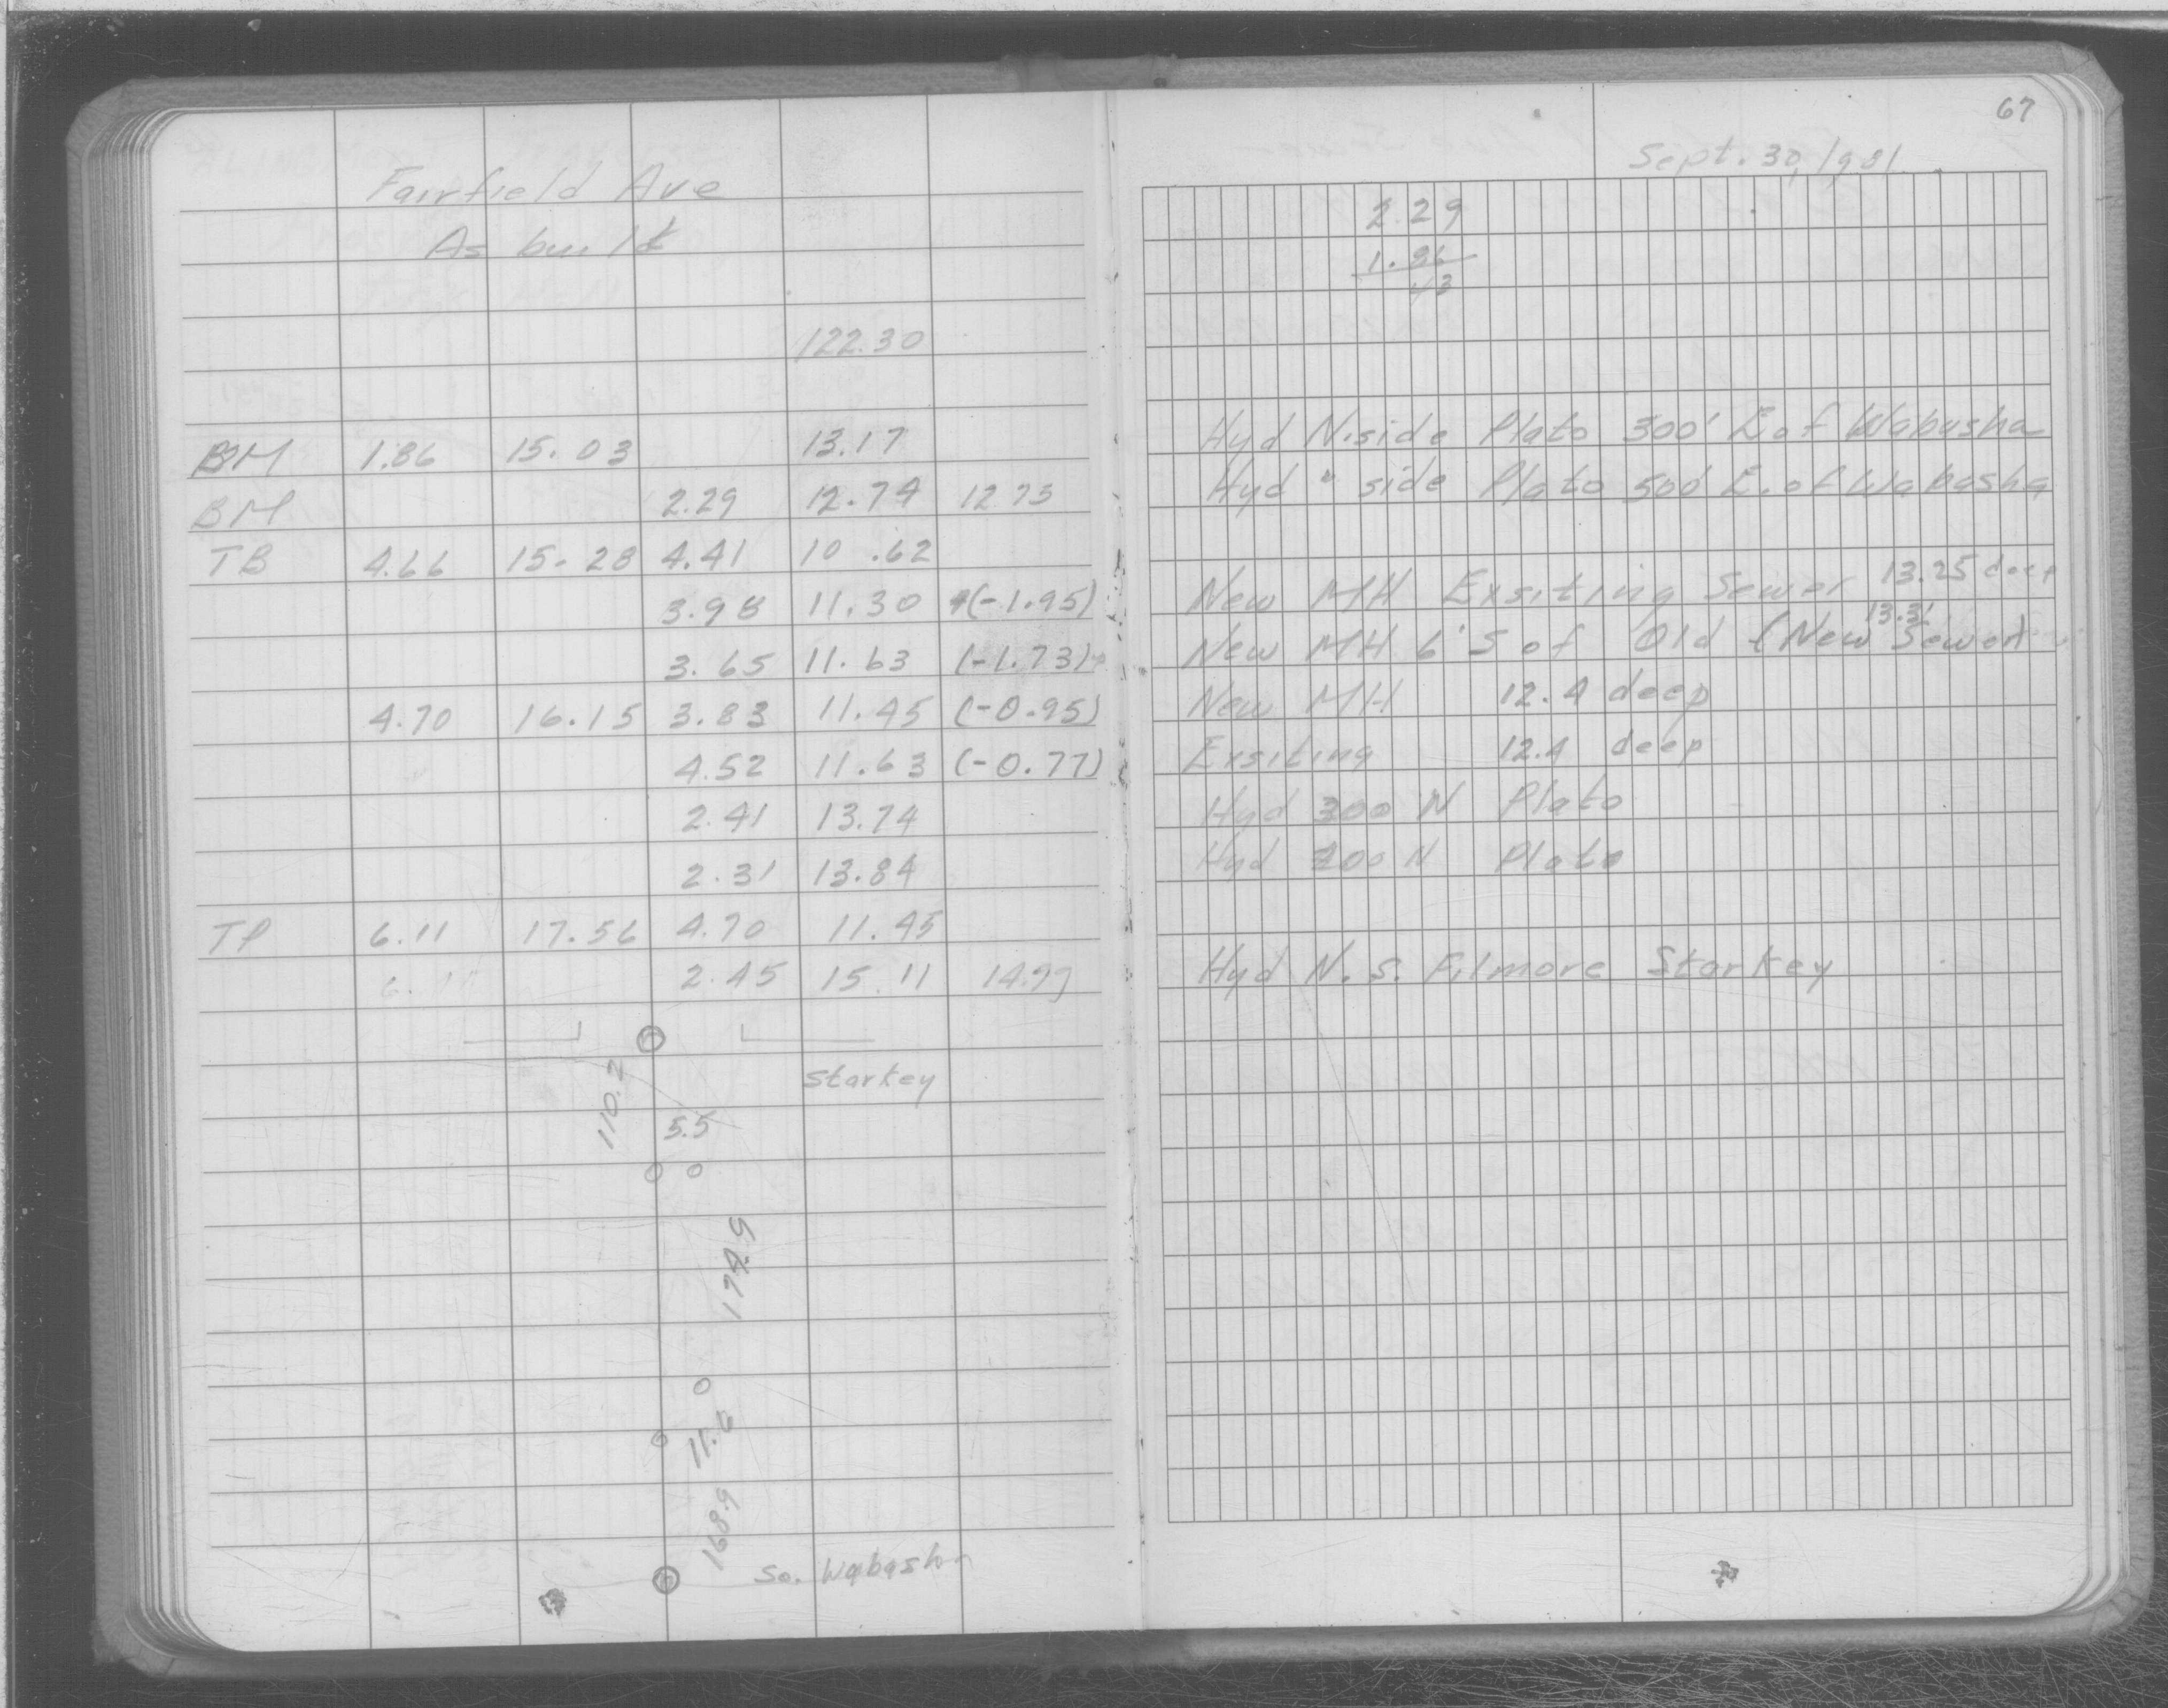 67
Sept. 30, 1981
Fairfield Ave
As built
2.29
1.86
43
122.30
BM 1.86 15.03 13.17 Hyd N.side Plato 300' E of Wabasha
BM 2.29 12.74 12.75 Hyd " side Plato 500' E. of Wabasha
TB 4.66 15.28 4.41 10.62
3.98 11.30 (-1.95) New MH Exsiting Sewer 13.25 deep
3.65 11.63 (-1.73) New MH 6' S of Old (New Sewer) 13.3'
4.70 16.15 3.83 11.45 (-0.95) New MH 12.4 deep
4.52 11.63 (-0.77) Exsiting 12.4 deep
2.41 13.74 Hyd 300 N Plato
2.31 13.84 Hyd 200 N Plato
TP 6.11 17.56 4.70 11.45
2.45 15.11 14.99 Hyd N. S. Filmore Starkey
Starkey
110.2
5.5
174.9
11.6
168.9
So. Wabasha